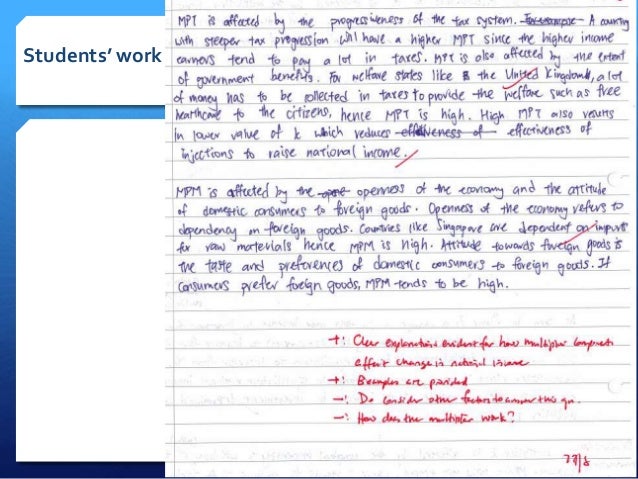 Students' work
MPT is affected by the progressiveness of the tax system. For example A country
with steeper tax progression will have a higher MPT since the higher income
earners tend to pay a lot in taxes. MPT is also affected by the extent
of government benefits. For welfare states like the United Kingdom, a lot
of money has to be collected in taxes to provide the welfare such as free
healthcare to the citizens, hence MPT is high. High MPT also results
in lower value of k which reduces effectiveness of effectiveness of
injections to raise national income.
MPM is affected by the openness of the economy and the attitude
of domestic consumers to foreign goods. Openness of the economy refers to
dependency on foreign goods. Countries like Singapore are dependent on imports
for raw materials hence MPM is high. Attitude towards foreign goods is
the taste and preferences of domestic consumers to foreign goods. If
consumers prefer foreign goods, MPM tends to be high.
+: Clear explanations evident for how multiplier components
affect change in national income
+: Examples are provided
-: Do consider other factors to answer this qn.
-: How does the multiplier work?